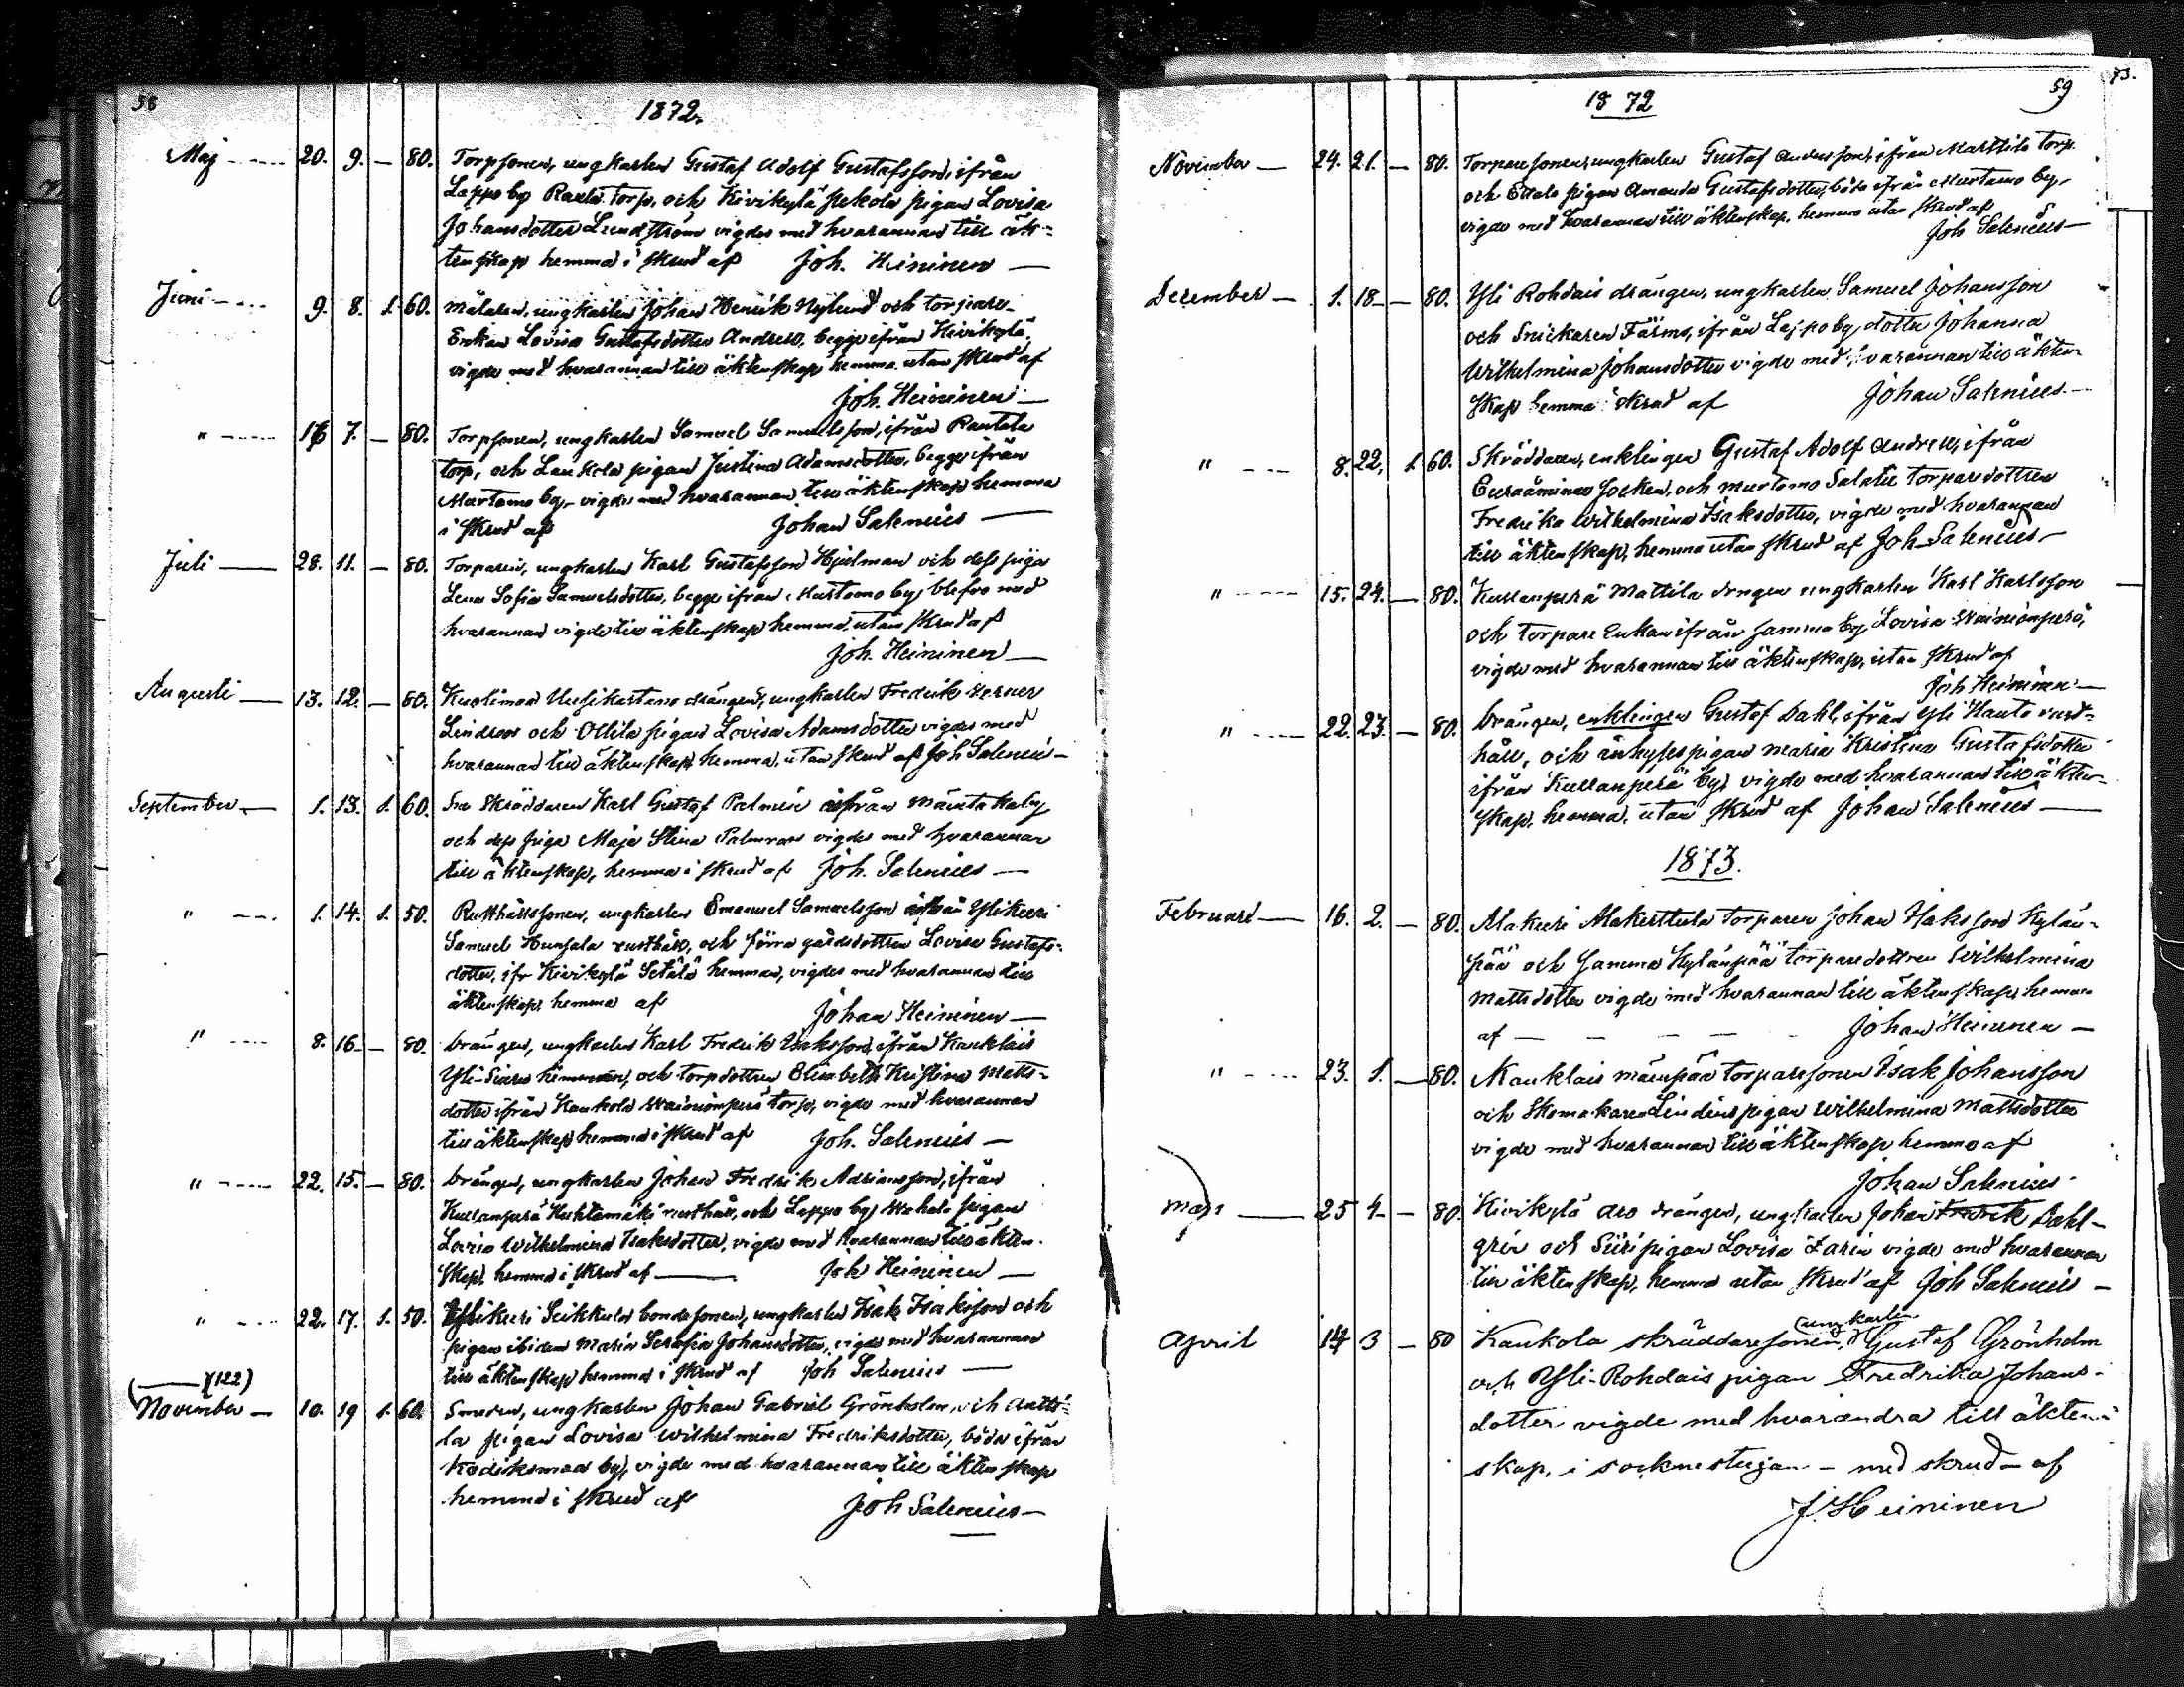 58
1872.
Maj 20. 9. — 80. Torpsonen, ungkarlen Gustaf Adolf Gustafsson, ifrån
Lappo by torp, och Kivikylä Pekola pigan Lovisa
Johansdotter Lundström vigdes med hvarannan till äk-
tenskap hemma i skrud af Joh. Heininen —
Juni 9. 8. 1. 60. Målaren, ungkarlen Johan Henrik Nylund och torpare-
Enkan Lovisa Gustafsdotter Andrew, begge ifrån Kivikylä,
vigde med hvarannan till äktenskap hemma utan skrud af
Joh. Heininen —
" 16 7. — 80. Torpsonen, ungkarlen Samuel Samuelsson, ifrån Rantala
torp, och pigan Justina Adamsdotter, begge ifrån
Murtamo by, vigde med hvarannan till äktenskap hemma
i skrud af Johan Salenius —
Juli 28. 11. — 80. Torparen, ungkarlen Karl Gustafsson Hjelman och dess piga
Lena Sofia Samuelsdotter, begge ifrån Murtamo by, blefvo med
hvarannan vigde till äktenskap hemma, utan skrud af
Joh. Heininen —
Augusti 13. 12. — 80. drängen, ungkarlen Fredrik Verner
Lindroos och Ollila pigan Lovisa Adamsdotter vigdes med
hvarannan till äktenskap, hemma, utan skrud af Joh Salenius —
September 1. 13. 1. 60. Skräddaren Karl Gustaf Palmén ifrån
och dess piga Maja Stina vigdes med hvarannan
till äktenskap, hemma i skrud af Joh. Salenius —
" 1. 14. 1. 50. Rusthållssonen, ungkarlen Emanuel Samuelsson ifrån Ylikieri
Samuel Hunsala rusthåll, och förra gårdsdottren Lovisa Gustafs-
dotter, ifr Kivikylä Setälä hemman, vigdes med hvarannan till
äktenskap, hemma af Johan Heininen —
" 8. 16. — 80. Drängen, ungkarlen Karl Fredrik Isaksson, ifrån Kauklais
hemman, och torpdottren Elisabeth Kristina Matts-
dotter ifrån Kaukola Wainionperä torp, vigde med hvarannan
till äktenskap hemma i skrud af Joh. Salenius —
" 22. 15. — 80. Drängen, ungkarlen Johan Fredrik Adriansson, ifrån
Kullanperä Huhtamäki rusthåll, och Lappo by pigan
Lovisa Wilhelmina Isaksdotter, vigde med hvarannan till äkten-
skap, hemma i skrud af — Joh Heininen —
" 22. 17. 1. 50. Ylikieri Seikkula bondesonen, ungkarlen Isak Isaksson och
pigan ibidem Maria Serafia Johansdotter, vigde med hvarannan
till äktenskap hemma i skrud af Joh Salenius —
(122)
November — 10. 19 1. 60. Smeden, ungkarlen Johan Gabriel Grönholm, och Antti-
la pigan Lovisa Wilhelmina Fredriksdotter, båda ifrån
Kodiksmaa by, vigde med hvarannan till äktenskap
hemma i skrud af Joh Salenius —
73.
59
1872
November — 24. 21. — 80. Torparesonen, ungkarlen Gustaf Andersson, ifrån Marttila torp
och Ettala pigan Amanda Gustafsdotter, båda ifrån Murtamo by,
vigde med hvarannan till äktenskap, hemma utan skrud af
Joh Salenius —
December — 1. 18. — 80. Yli Rohdais drängen, ungkarlen Samuel Johansson
och Snickaren Färms, ifrån Lappo by, dotter Johanna
Wilhelmina Johansdotter vigde med hvarannan till äkten-
skap hemma i skrud af Johan Salenius —
" 8. 22. 1. 60. Skräddaren, enklingen Gustaf Adolf Andrell, ifrån
Euraåminne Socken, och Murtamo torparedottren
Fredrika Wilhelmina Isaksdotter, vigde med hvarannan
till äktenskap, hemma utan skrud af Joh. Salenius —
" 15. 24. — 80. Kullanperä Mattila drngen ungkarlen Karl Karlsson
och torpare Enkan ifrån samma by Lovisa Wainionperä,
vigde med hvarannan till äktenskap, utan skrud af
Joh Heininen —
" 22. 23. — 80. Drängen, enklingen Gustaf Dahl, ifrån Yli Hauta rust-
håll, och pigan Maria Kristina Gustafsdotter
ifrån Kullanperä by, vigde med hvarannan till äkten-
skap, hemma, utan skrud af Johan Salenius —
1873.
Februari — 16. 2. — 80. Alakieri torparen Johan Isaksson Kylän-
pää och samma Kylänpää torparedottren Wilhelmina
Mattsdotter vigde med hvarannan till äktenskap, hemma
af — Johan Heininen —
" 23. 1. — 80. Kauklais Mäenpää torparesonen Isak Johansson
och Skomakaren Lindéns pigan Wilhelmina Mattsdotter
vigde med hvarannan till äktenskap hemma af
Johan Salenius
Mars — 25 4 — 80. Kivikylä Aro drängen, ungkarlen Johan Fredrik Dahl-
grén och Siiri pigan Lovisa Zarin vigde med hvarannan
till äktenskap, hemma utan skrud af Joh Salenius —
ungkarlen
April 14 3 — 80 Kaukola skräddaresonen, Gustaf Grönholm
och Yli-Rohdais pigan Fredrika Johans-
dotter vigde med hvarandra till äkten-
skap, i socknestugan — med skrud — af
J. Heininen